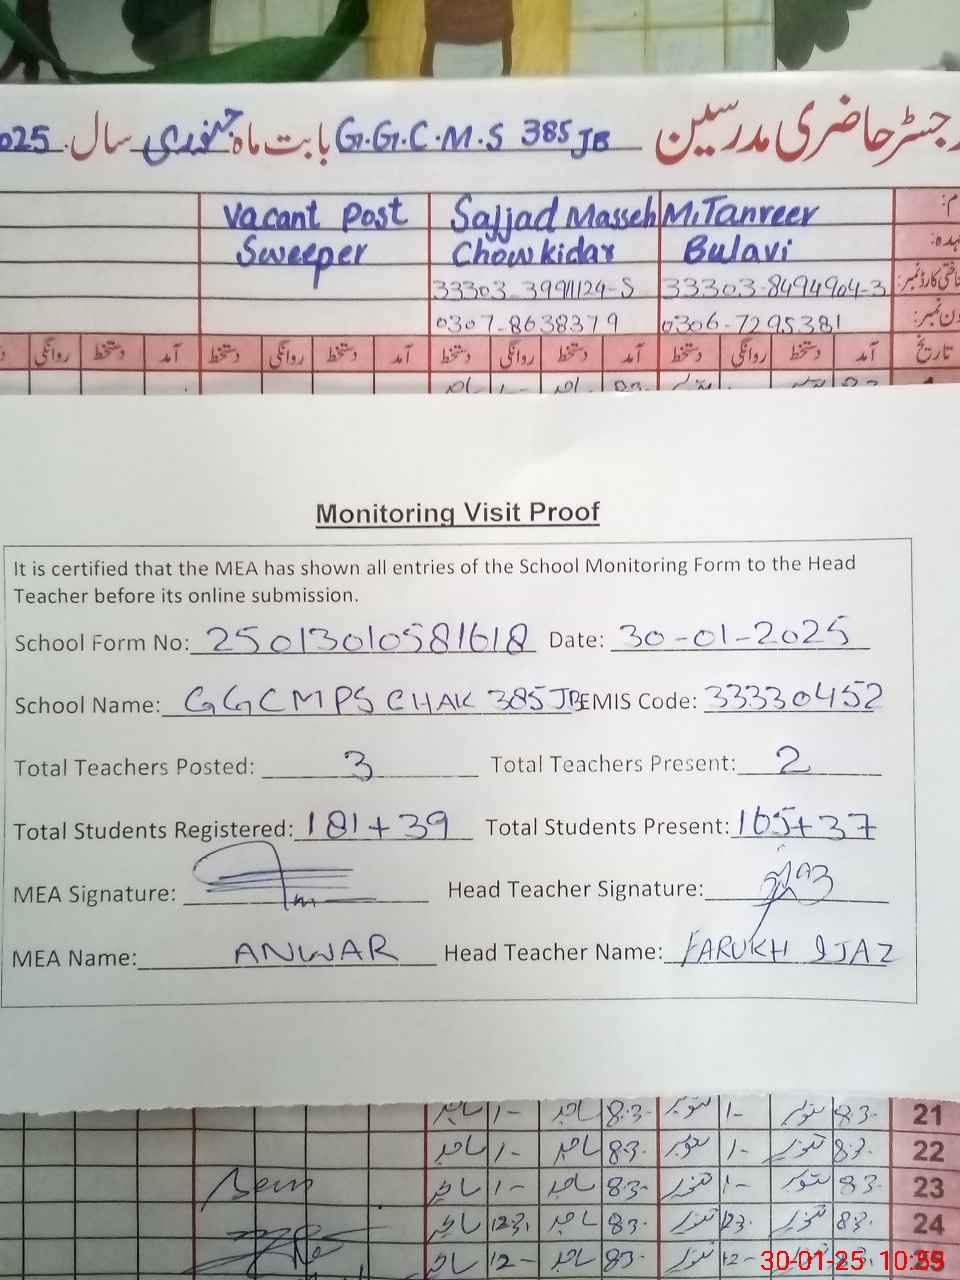 رجسٹر حاضری مدرسین G.G.C.M.S 385 JB بابت ماہ جنوری سال 2025
نام: M. Tanveer Sajjad Masseh Vacant Post
عہدہ: Bulavi Chowkidar Sweeper
شناختی کارڈ نمبر: 33303-8494904-3
فون نمبر: 0306-7295381 0307-8638379
تاریخ آمد دستخط روانگی دستخط آمد دستخط روانگی دستخط آمد دستخط روانگی دستخط آمد دستخط روانگی
Monitoring Visit Proof
It is certified that the MEA has shown all entries of the School Monitoring Form to the Head
Teacher before its online submission.
School Form No: 25013010581618 Date: 30-01-2025
School Name: GGCMPS CHAK 385 JB EMIS Code: 33330452
Total Teachers Posted: 3 Total Teachers Present: 2
Total Students Registered: 181+39 Total Students Present: 165+37
MEA Signature: Head Teacher Signature:
MEA Name: ANWAR Head Teacher Name: FARUKH IJAZ
21 8:3- تنویر 1- تنویر 8:3- ساجد 1- ساجد
22 8:3- تنویر 1- تنویر 8:3- ساجد 1- ساجد
23 8:3- تنویر 1- تنویر 8:3- ساجد 1- ساجد
24 8:3- تنویر 12:3- تنویر 8:3- ساجد 12:3- ساجد
8:3- تنویر 12- تنویر 8:3- ساجد 12- ساجد
30-01-25 10:59